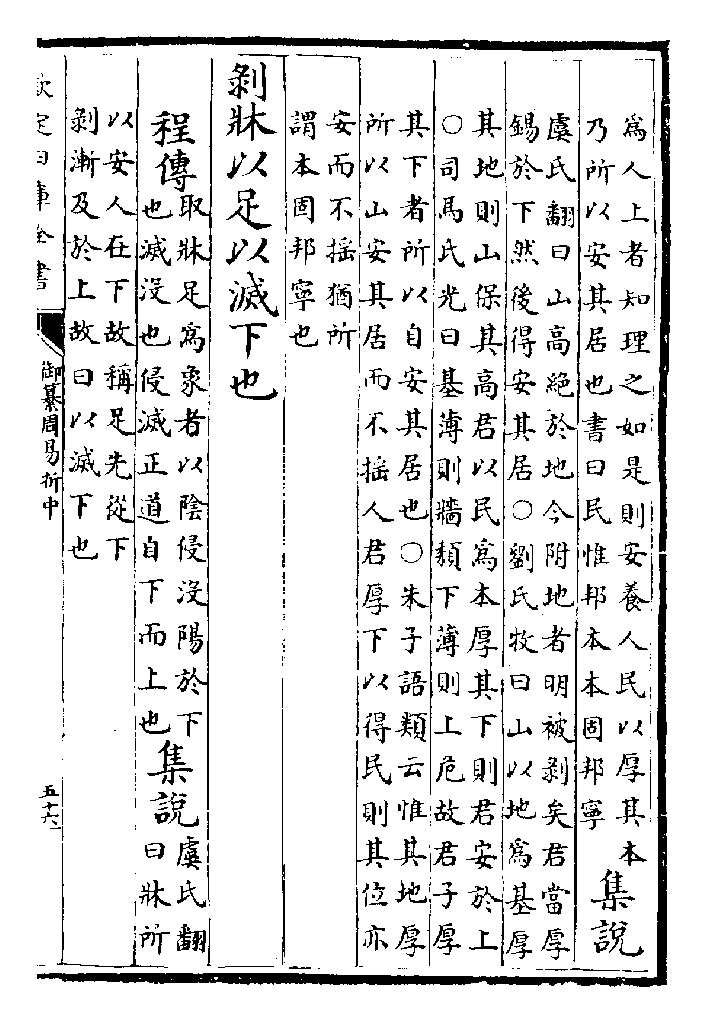 為人上者知理之如是則安養人民以厚其本
乃所以安其居也書曰民惟邦本本固邦寧
集説
虞氏翻曰山高絶於地今附地者明被剥矣君當厚
錫於下然後得安其居○劉氏牧曰山以地為基厚
其地則山保其高君以民為本厚其下則君安於上
○司馬氏光曰基薄則牆頽下薄則上危故君子厚
其下者所以自安其居也○朱子語類云惟其地厚
所以山安其居而不揺人君厚下以得民則其位亦
安而不揺猶所
謂本固邦寧也
剥牀以足以滅下也
程傳
取牀足為象者以陰侵没陽於下
也滅没也侵滅正道自下而上也
集説
虞氏翻
曰牀所
以安人在下故稱足先從下
剥漸及於上故曰以滅下也
欽定四庫全書
御纂周易折中
五十六